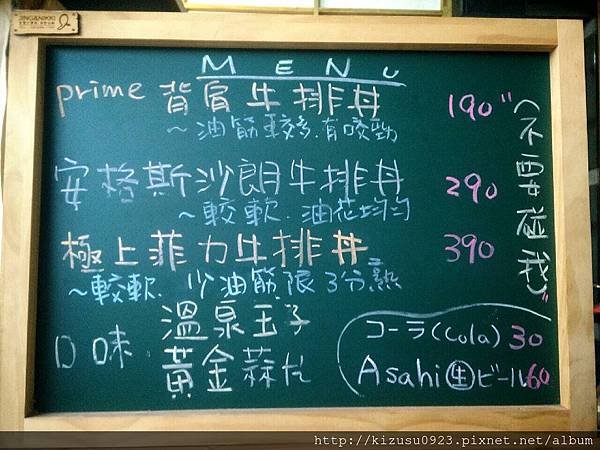 MENU
prime 背肩牛排丼 190
~油筋較多.有咬勁
安格斯沙朗牛排丼 290
~較軟.油花均勻
極上菲力牛排丼 390
~較軟.少油筋.限3分熟
口味 溫泉玉子
黃金蒜片
"(不要碰我)"
コーラ(Cola) 30
Asahi 生 ビール 60
http://kizusu0923.pixnet.net/album